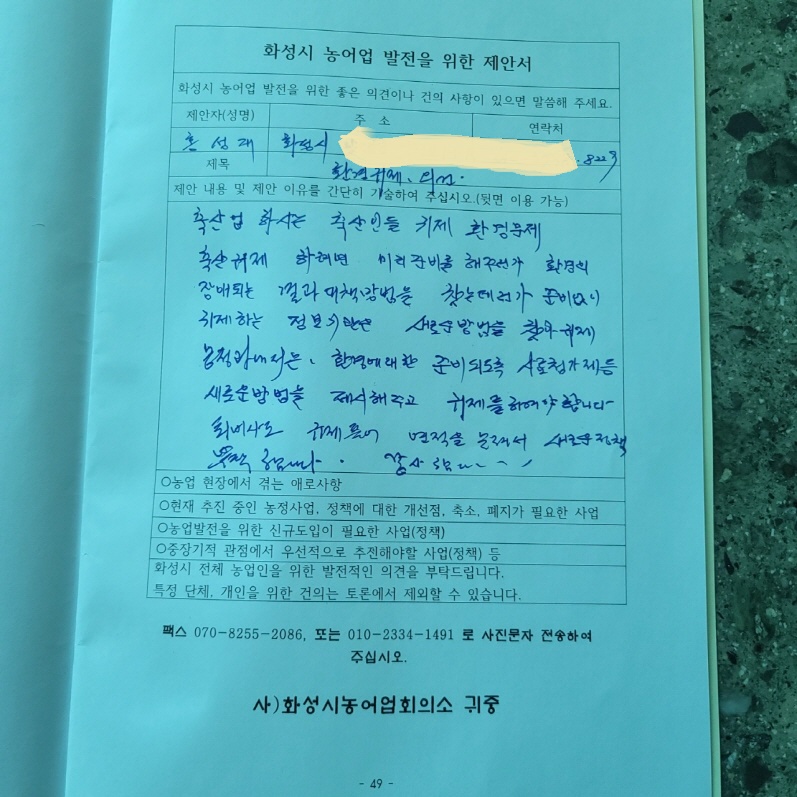 화성시 농어업 발전을 위한 제안서
화성시 농어업 발전을 위한 좋은 의견이나 건의 사항이 있으면 말씀해 주세요.
제안자(성명) 주 소 연락처
홍성재 화성시 8223
제목 환경규제, 의견.
제안 내용 및 제안 이유를 간단히 기술하여 주십시오.(뒷면 이용 가능)
축산업 하시는 축산인들 규제 환경문제
축산규제 하려면 미리준비를 해주던가 환경의
장애되는 결과 대책,방법을 찾는데던가 준비없이
규제하는 새로운방법을 찾아 규제
환경에대한 준비되도록 사료첨가제등
새로운방법을 제시해주고 규제를하여야합니다
퇴비사도 규제풀어 면적을 늘려서 새로운정책
부탁 합니다. 감사합니다
○농업 현장에서 겪는 애로사항
○현재 추진 중인 농정사업, 정책에 대한 개선점, 축소, 폐지가 필요한 사업
○농업발전을 위한 신규도입이 필요한 사업(정책)
○중장기적 관점에서 우선적으로 추진해야할 사업(정책) 등
화성시 전체 농업인을 위한 발전적인 의견을 부탁드립니다.
특정 단체, 개인을 위한 건의는 토론에서 제외할 수 있습니다.
팩스 070-8255-2086, 또는 010-2334-1491 로 사진문자 전송하여
주십시오.
사)화성시농어업회의소 귀중
- 49 -